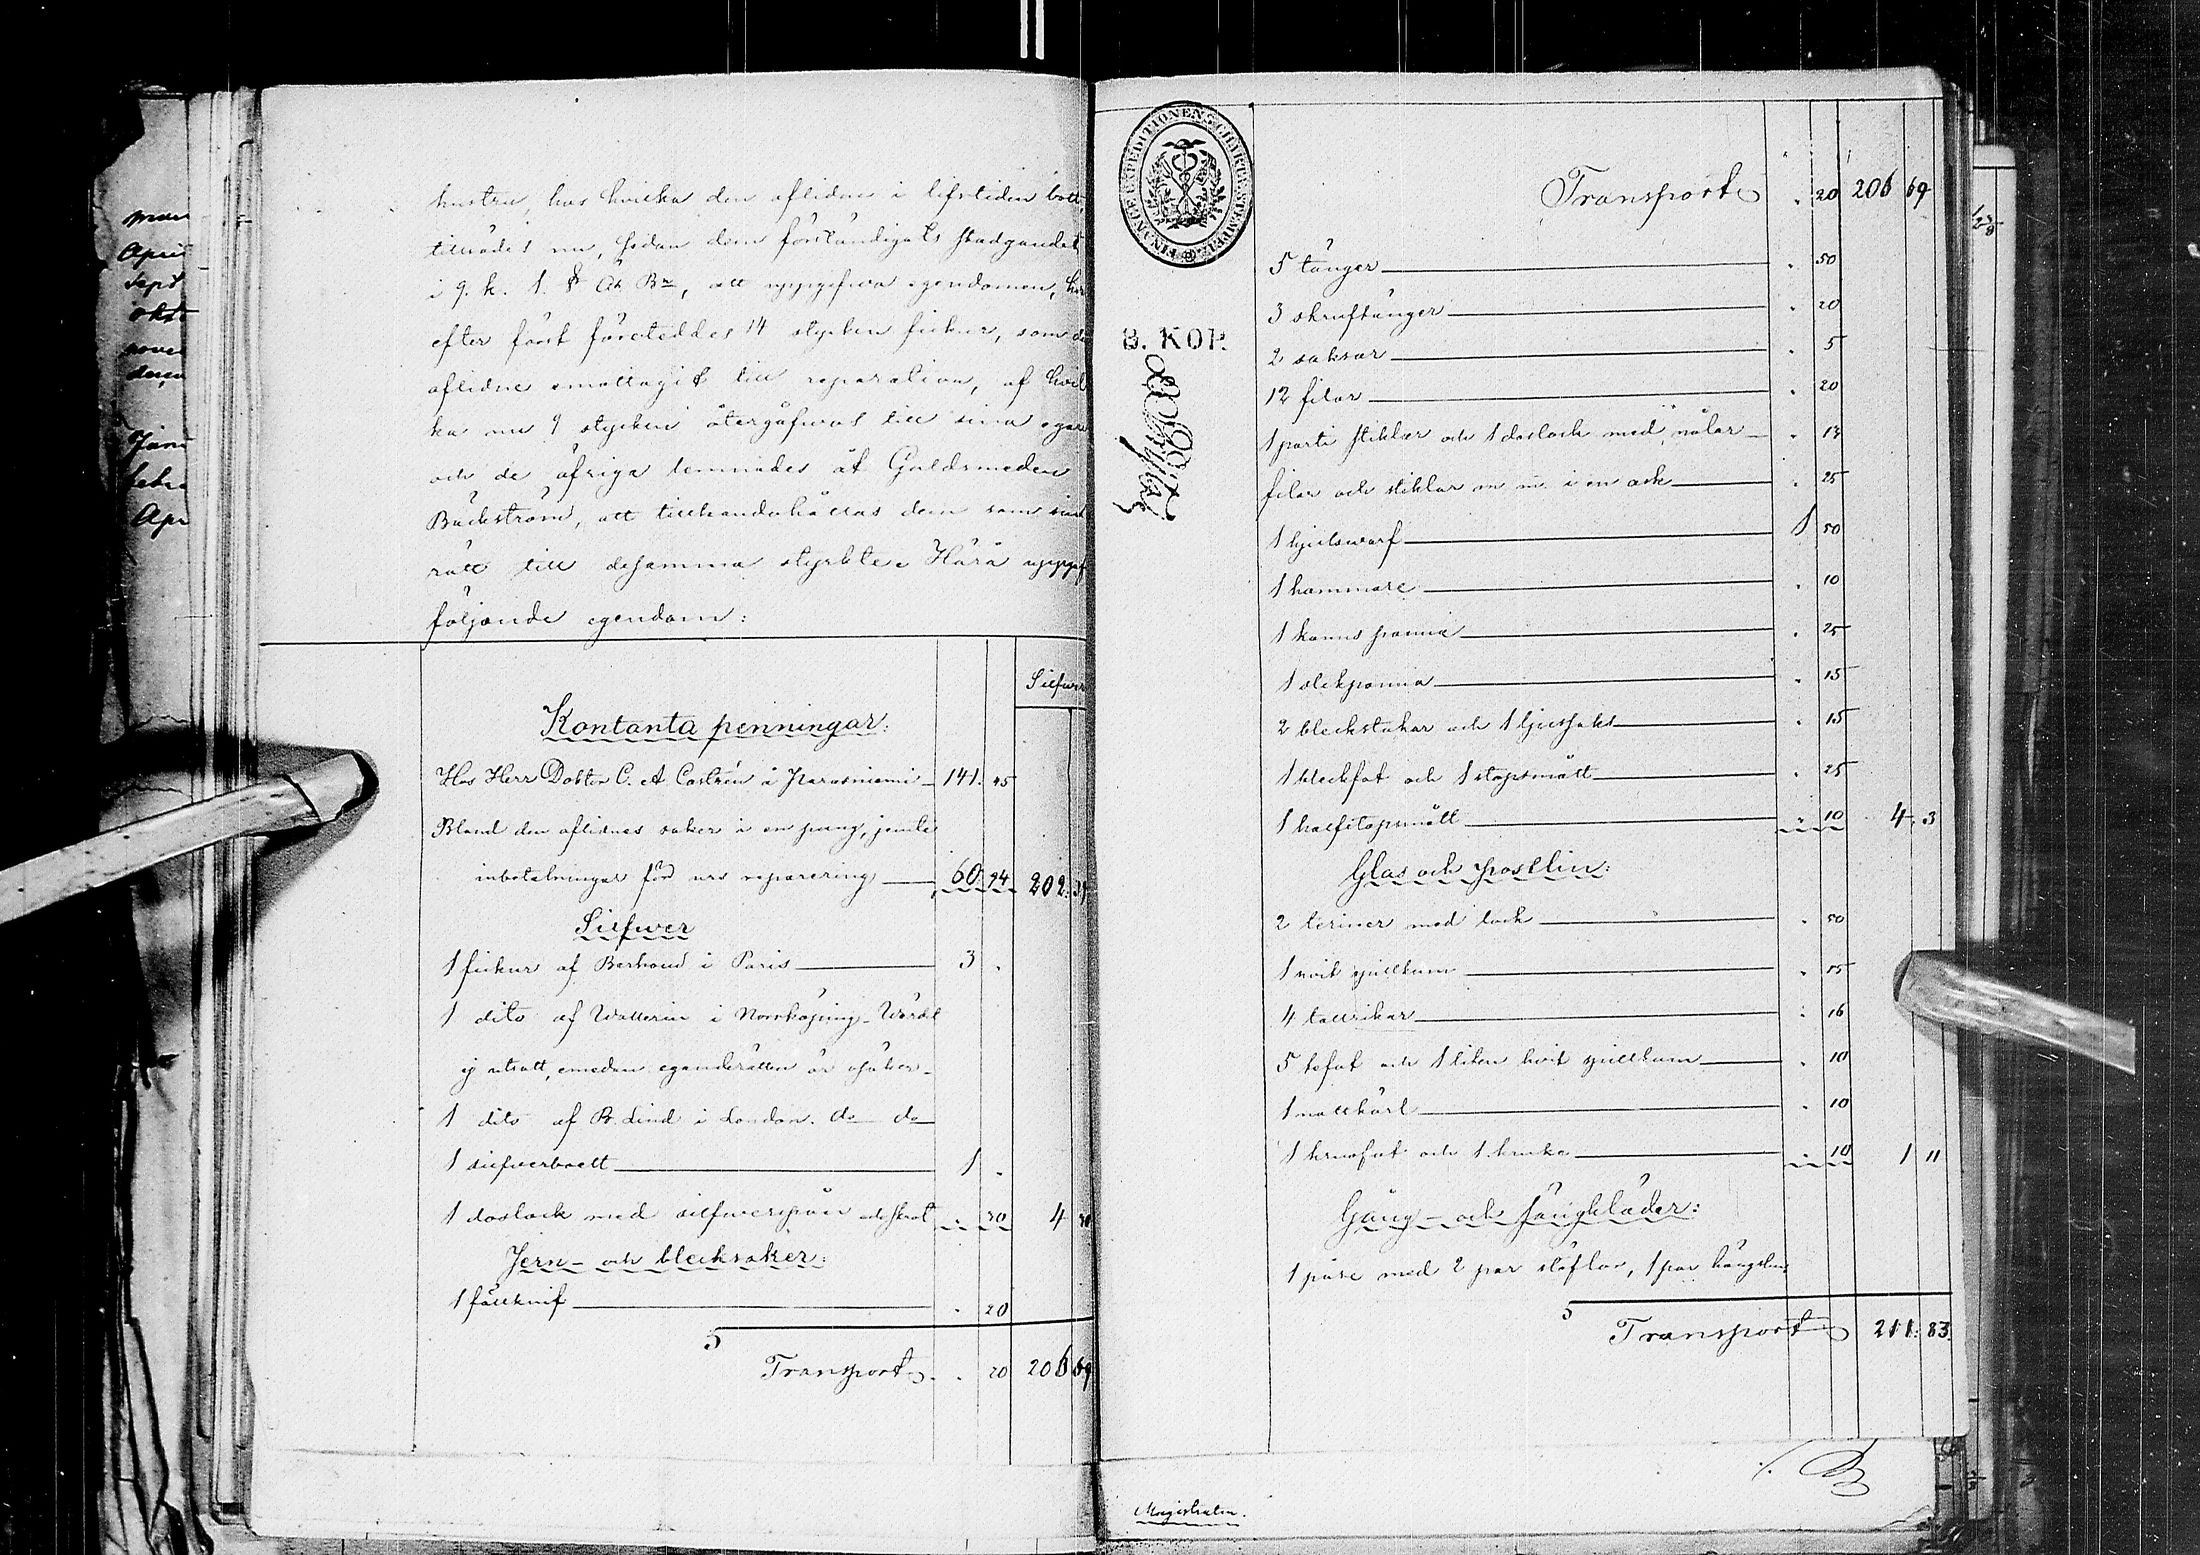 hustru, hos hvilka den aflidne i lifstiden bott,
tillsades nu, sedan dem förständigats stadgandet
i 9. k. 1. § Ä. Bn, att uppgifva egendomen, här
efter först företeddes 14 stycken fickur, som de
aflidne emottagit till reparation, af hvil
ka nu 9 stycken återgåfwos till sina egare
och de öfriga lemnades åt Guldsmeden
Bäckström, att tillhandahållas dem som sin
rätt till desamma styrkte. Härå uppgafs
följande egendom:
Silfwer
Kontanta penningar:
Hos Herr Doktor C. A Castrén å Parasniemi 141. 45
Bland den aflidnes saker i en pung, jemte
inbetalningar för urs reparering 60. 94 202. 39
Silfwer
1 fickur af Berhoud i Paris 3 .
1 dito af Wetterin i Norrköping. Wärdet
ej utsatt, emedan eganderätten är osäker.
1 dito af B. Lind i London. do do
1 silfwerboett 1 .
1 doslock med silfwerspån och skrot . 30 4 30
Jern- och blecksaker:
1 fällknif . 20
5
Transport . 20 206 69
FINANCE EXPEDITIONENS CHARTÆ STEMPEL
8. KOP.
Transport . 20 206 69
5 tänger . 50
3 skruftänger . 20
2 saxar . 5
12 filar . 20
1 parti stiklar och 1 doslock med nålar . 13
filar och stiklar m m. i en ask . 25
1 hjulswarf 1 50
1 hammare . 10
1 kanns panna . 25
1 stekpanna . 15
2 bleckstakar och 1 ljussaks . 15
1 bleckfat och 1 stopsmått . 25
1 halfstopsmått . 10 4. 3
Glas och postlin:
2 teriner med lock . 50
1 hvit spillkum . 15
4 tallrikar . 16
5 tefat och 1 liten hvit spillkum . 10
1 nattkärl . 10
1 krusfat och 1 kruka . 10 1 11
Gång- och sängkläder:
1 påse med 2 par stöflar, 1 par hängslen,
5
Transport 211. 83.
Magistraten.